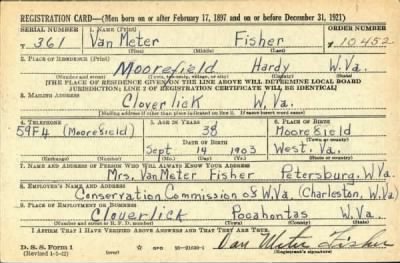 REGISTRATION CARD—(Men born on or after February 17, 1897 and on or before December 31, 1921)
SERIAL NUMBER 1. NAME (Print) ORDER NUMBER
T 361 Van Meter Fisher 10452
(First) (Middle) (Last)
2. PLACE OF RESIDENCE (Print)
Moorefield Hardy W.Va.
(Number and street) (Town, township, village, or city) (County) (State)
[THE PLACE OF RESIDENCE GIVEN ON THE LINE ABOVE WILL DETERMINE LOCAL BOARD
JURISDICTION; LINE 2 OF REGISTRATION CERTIFICATE WILL BE IDENTICAL]
3. MAILING ADDRESS
Cloverlick W.Va.
[Mailing address if other than place indicated on line 2. If same insert word same]
4. TELEPHONE 5. AGE IN YEARS 6. PLACE OF BIRTH
59F4 (Moorefield) 38 Moorefield
DATE OF BIRTH (Town or county)
Sept 14 1903 West. Va.
(Exchange) (Number) (Mo.) (Day) (Yr.) (State or country)
7. NAME AND ADDRESS OF PERSON WHO WILL ALWAYS KNOW YOUR ADDRESS
Mrs. Van Meter Fisher Petersburg W.Va
8. EMPLOYER'S NAME AND ADDRESS
Conservation Commission of W.Va (Charleston, W.Va)
9. PLACE OF EMPLOYMENT OR BUSINESS
Cloverlick Pocahontas W.Va.
(Number and street or R. F. D. number) (Town) (County) (State)
I AFFIRM THAT I HAVE VERIFIED ABOVE ANSWERS AND THAT THEY ARE TRUE.
D. S. S. Form 1 GPO Van Meter Fisher
(Revised 1-5-42) (Registrant's signature)